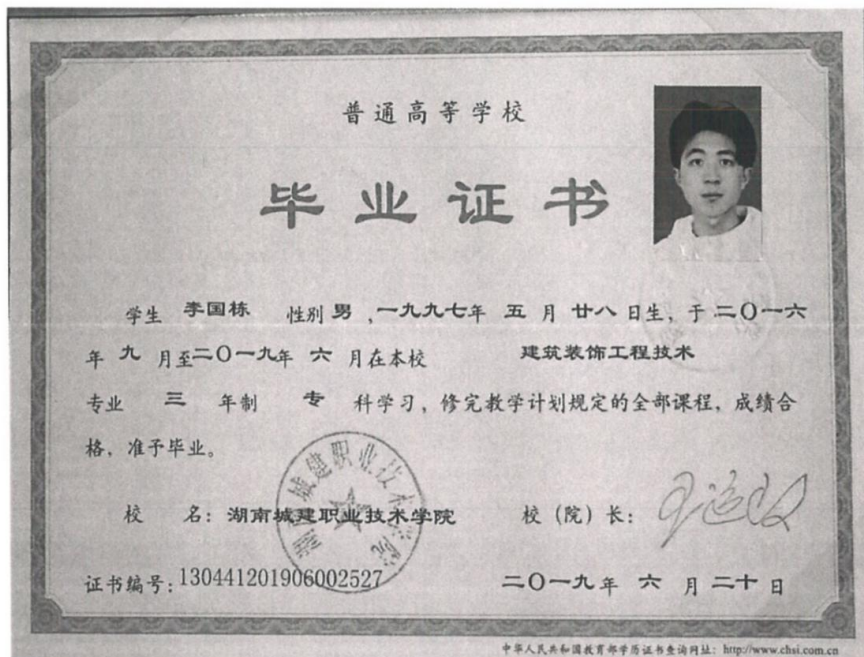 普通高等学校
毕业证书
学生 李国栋 性别 男 ,一九九七年 五 月 廿八 日生, 于 二〇一六
年 九 月至二〇一九年 六 月在本校 建筑装饰工程技术
专业 三 年制 专 科学习, 修完教学计划规定的全部课程, 成绩合
格, 准予毕业。
湖南城建职业技术学院
校 名: 湖南城建职业技术学院 校(院)长:
证书编号: 130441201906002527 二〇一九年 六 月 二十 日
中华人民共和国教育部学历证书查询网址: http://www.chsi.com.cn